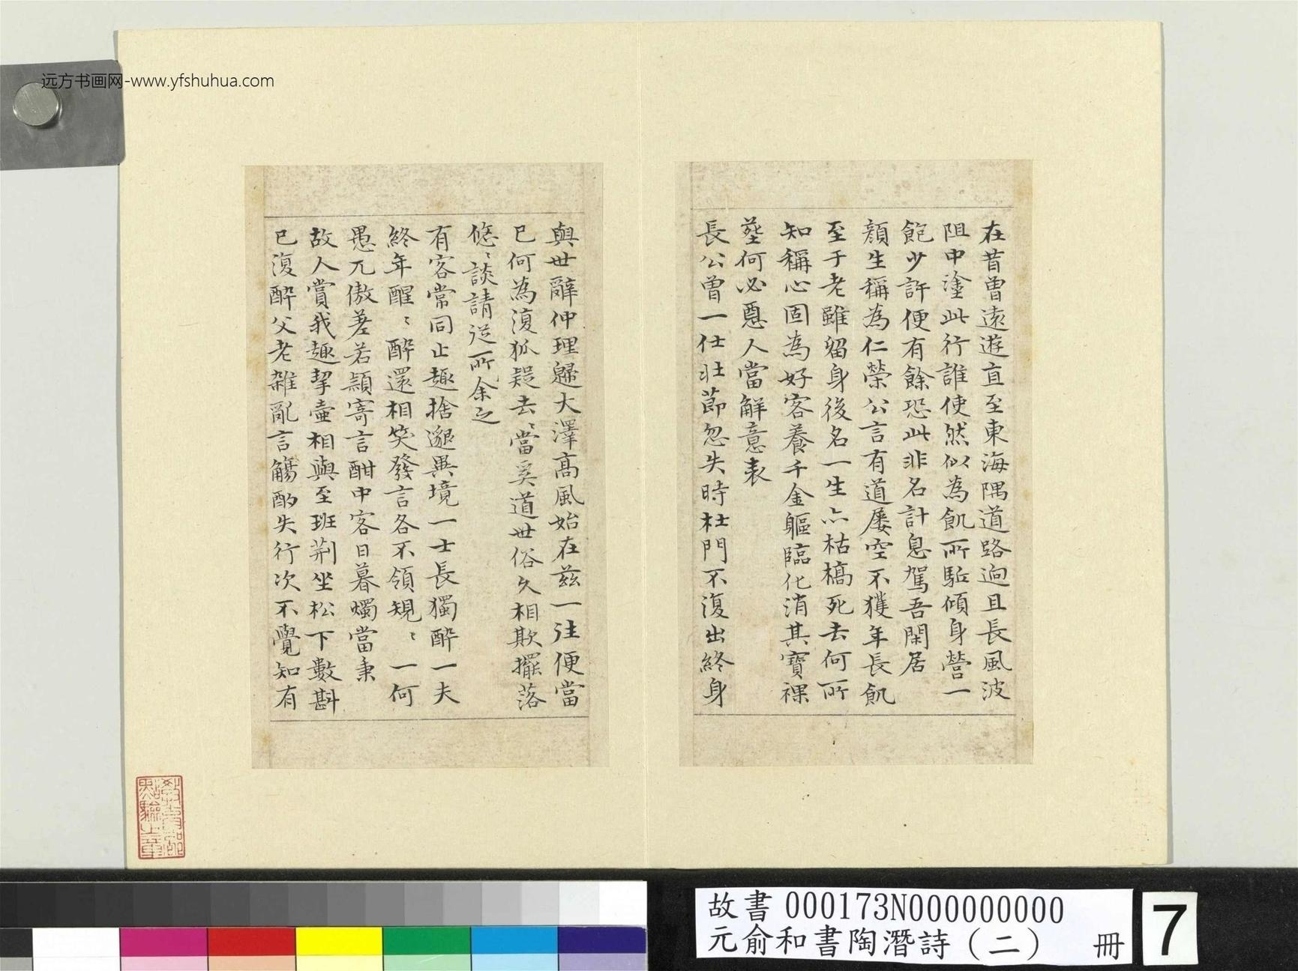 远方书画网-www.yfshuhua.com
在昔曾遠遊直至東海隅道路迥且長風波
阻中塗此行誰使然似為飢所駈傾身營一
飽少許便有餘恐此非名計息駕吾閑居
顏生稱為仁榮公言有道屢空不獲年長飢
至于老雖留身後名一生亦枯槁死去何所
知稱心固為好客養千金軀臨化消其寶裸
葬何必惡人當解意表
長公曾一仕壯莭忽失時杜門不復出終身
與世辭仲理歸大澤高風始在茲一往便當
已何為復狐疑去〻當奚道世俗久相欺擺落
悠〻談請從所余之
有客常同止趣捨邈異境一士長獨醉一夫
終年醒〻醉還相笑發言各不領規〻一何
愚兀傲差若穎寄言酣中客日暮燭當秉
故人賞我趣挈壷相與至班荆坐松下數斟
已復醉父老雜亂言觴酌失行次不覺知有
故書 000173N000000000
元俞和書陶潛詩（二） 冊
7